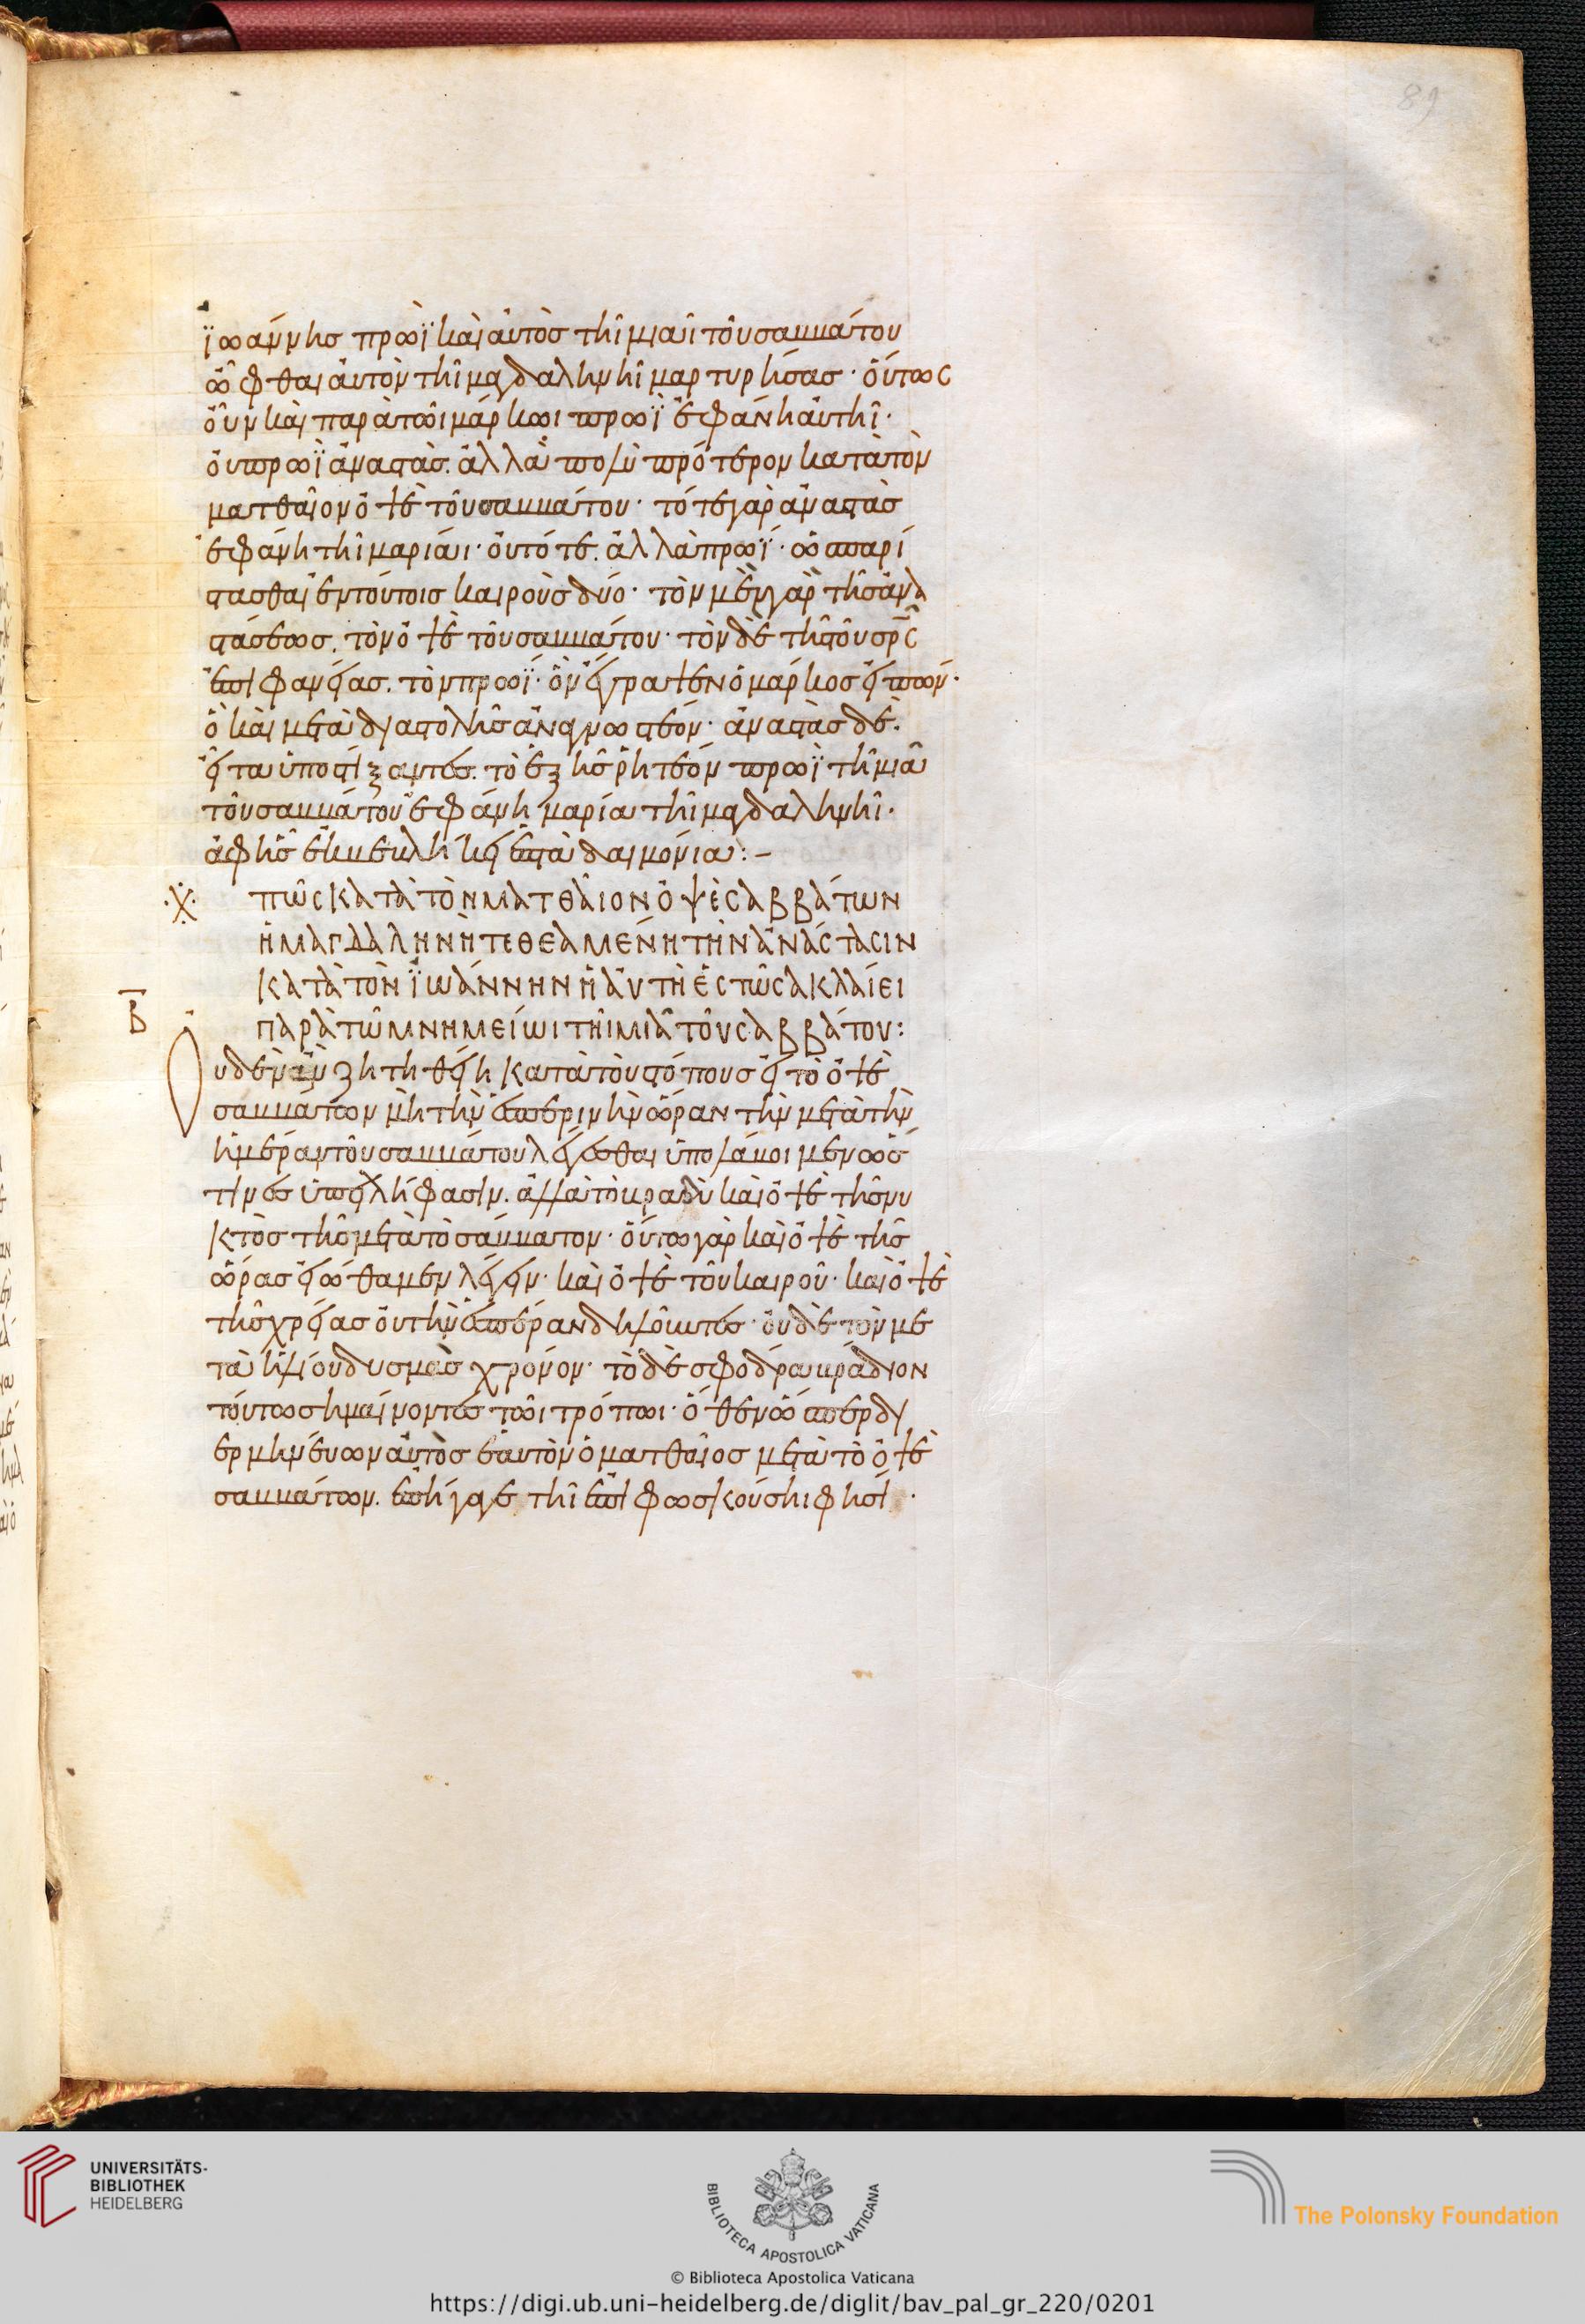 89
ϊωάννησ πρωῒ καὶ ἀυτὸσ τῆι μιᾶι τοῦ σαββάτου
ὦφθαι ἀυτὸν τῆι μαγδαληνῆι μαρτυρήσασ· ὅυτωσ
ὄυν καὶ παρὰ τῶι μάρκωι πρωῒ ἐφάνη ἀυτῆι·
ὀυ πρωῒ ἀναστὰσ. ἀλλὰ πολὺ πρότερον κατὰ τὸν
ματθαῖον ὀψὲ τοῦ σαββάτου· τότε γὰρ ἀναστὰσ
ἐφάνη τῆι μαρίαι· ὀυ τότε. ἀλλὰ πρωΐ· ὡσ παρί
στασθαι ἐν τούτοισ καιροὺσ δύο· τὸν μὲν γὰρ τῆσ ἀνα
στάσεωσ. τὸν ὀψὲ τοῦ σαββάτου· τὸν δὲ τῆσ τοῦ σρ̅σ
ἐπιφανείασ. τὸν πρωΐ· ὃν ἔγραψεν ὁ μάρκοσ εἰπών·
ὃ καὶ μετὰ διαστολῆσ ἀναγνωστέον· ἀναστὰσ δέ.
εἶτα ὑποστίξαντεσ. τὸ ἑξῆσ ῥητέον πρωῒ τῆι μιᾶ
τοῦ σαββάτου ἐφάνη μαρία τῆι μαγδαληνῆι·
ἀφ ἧσ ἐκβεβλήκει ἑπτὰ δαιμόνια:–
ΠΩ͂C ΚΑΤΑ ΤὸΝ ΜΑΤΘΑῖΟΝ ὀΨὲ CΑΒΒάΤΩΝ
ἡ ΜΑΓΔΑΛΗΝὴ ΤΕΘΕΑΜέΝΗ ΤὴΝ ἀΝάCΤΑCΙΝ
ΚΑΤὰ ΤὸΝ ϊΩάΝΝΗΝ ἡ ἀΥΤὴ ἑCΤῶCΑ ΚΛΑίΕΙ
Β ΠΑΡὰ ΤῶΜΝΗΜΕίΩΙ ΤῆΙ ΜΙᾶ ΤΟῦ CΑΒΒάΤΟΥ:
Ουδὲν ἂν ζητηθείη κατὰ τοὺσ τόπουσ εἰ τὸ ὀψὲ
σαββάτων μὴ τὴν ἑσπερινὴν ὥραν τὴν μετὰ τὴν
ἡμέραν τοῦ σαββάτου λέγεσθαι ὑπολάβοιμεν ὥσ
τινεσ ὑπειλήφασιν. ἀλλὰ τὸ βραδὺ καὶ ὀψὲ τῆσ νυ
κτὸσ τῆσ μετὰ τὸ σάββατον· ὅυτω γὰρ καὶ ὀψὲ τῆσ
ὥρασ εἰώθαμεν λέγειν· καὶ ὀψὲ τοῦ καιροῦ· καὶ ὀψὲ
τῆσ χρείασ ὀυ τὴν ἑσπέραν δηλοῦντεσ· ὀυδὲ τὸν με
τὰ ἡλίου δυσμὰσ χρόνον· τὸ δὲ σφόδρα βράδιον
τούτω σημαίνοντεσ τῶι τρόπωι· ὅθεν ὥσπερ δι
ερμηνέυων ἀυτὸσ ἑαυτὸν ὁ ματθαῖοσ μετὰ τὸ ὀψὲ
σαββάτων. ἐπήγαγε τῆι ἐπιφωσκούσηι φησί·
UNIVERSITÄTS-
BIBLIOTHEK
HEIDELBERG
BIBLIOTECA APOSTOLICA VATICANA
The Polonsky Foundation
© Biblioteca Apostolica Vaticana
https://digi.ub.uni-heidelberg.de/diglit/bav_pal_gr_220/0201